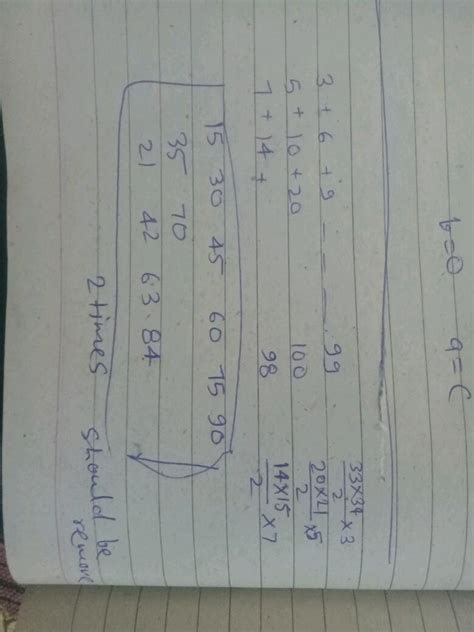 b=0 a=C
3 + 6 + 9 - - - 99 33×34/2 ×3
5 + 10 + 20 100 20×21/2 ×5
7 + 14 + 98 14×15/2 ×7
15 30 45 60 75 90
35 70
21 42 63 84
2 times should be remove